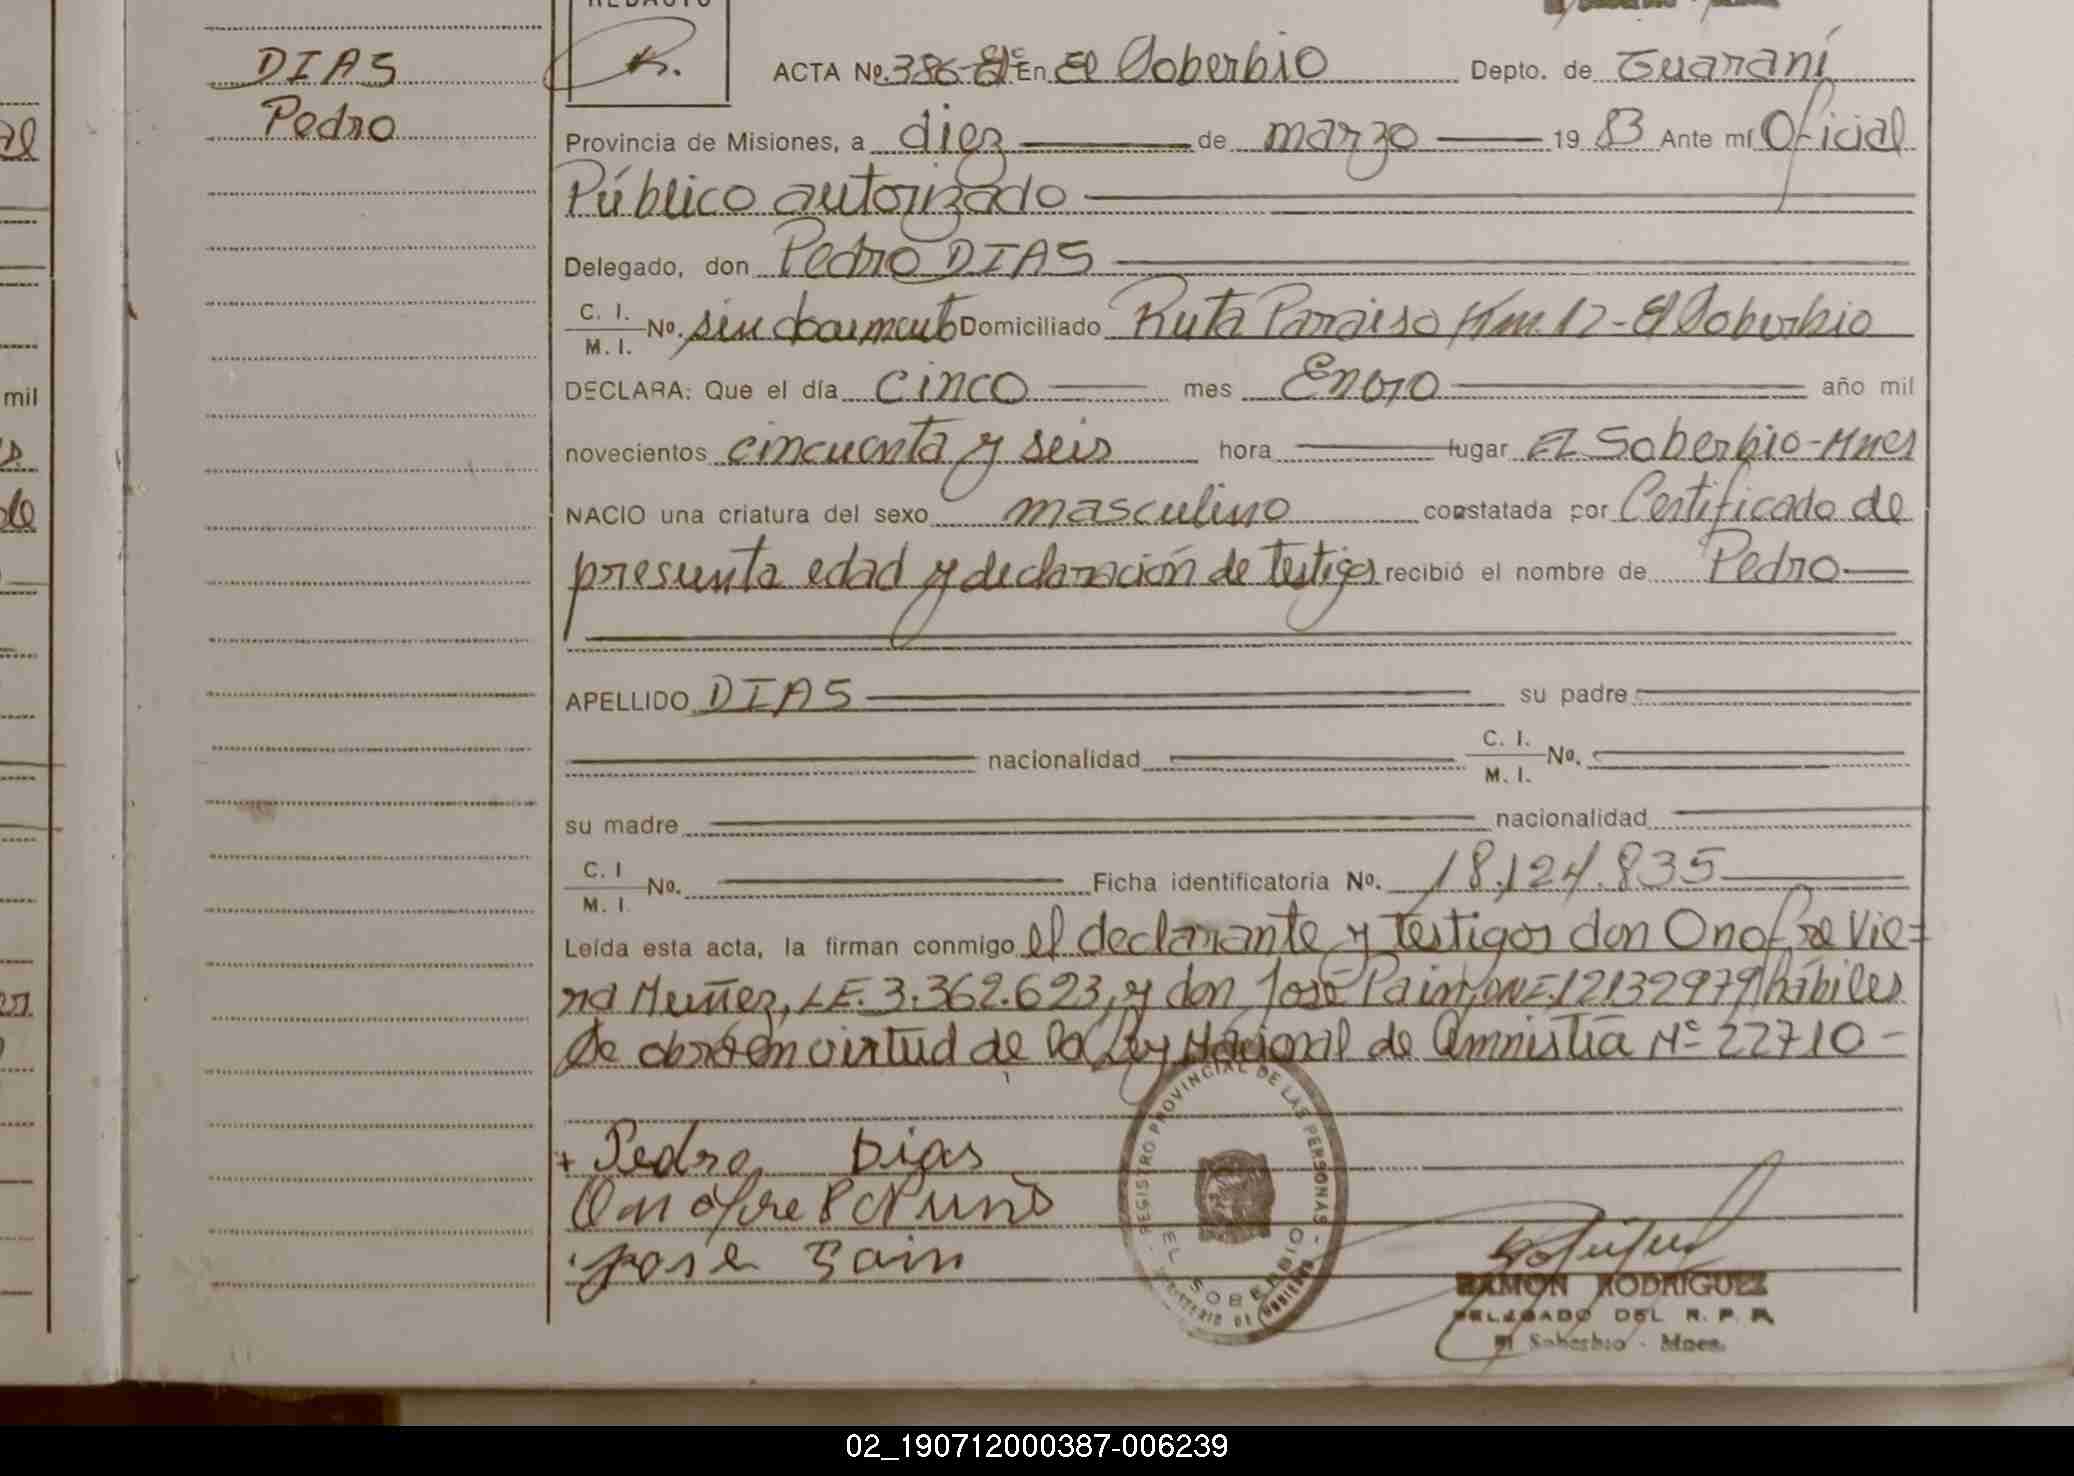 REDACTO
DIAS
Pedro
ACTA Nº. 386- En El Soberbio Depto. de Guaraní
Provincia de Misiones, a diez de marzo 19 83 Ante mí Oficial
Público autorizado
Delegado, don Pedro DIAS
C. I.
M. I. Nº. sin documento Domiciliado Ruta Paraiso Km. 12 - El Soberbio
DECLARA: Que el día cinco mes Enero año mil
novecientos cincuenta y seis hora lugar El Soberbio-Mnes
NACIO una criatura del sexo masculino constatada por Certificado de
presunta edad y declaración de testigos recibió el nombre de Pedro
APELLIDO DIAS su padre
nacionalidad C. I.
M. I. Nº.
su madre nacionalidad
C. I
M. I. Nº. Ficha identificatoria Nº. 18.124.835
Leída esta acta, la firman conmigo el declarante y testigos don Onofre Vie-
ra Muñez, L.E. 3.362.623, y don José Pain, DNI. 12132979 hábiles
Se obró en virtud de la Ley Nacional de Amnistía Nº 22710 -
+ Pedro Dias
Onofre
José Pain
REGISTRO PROVINCIAL DE LAS PERSONAS
EL SOBERBIO
MINISTERIO DE GOBIERNO
RAMON RODRIGUEZ
DELEGADO DEL R. P. P.
El Soberbio - Mnes.
mil
02_190712000387-006239